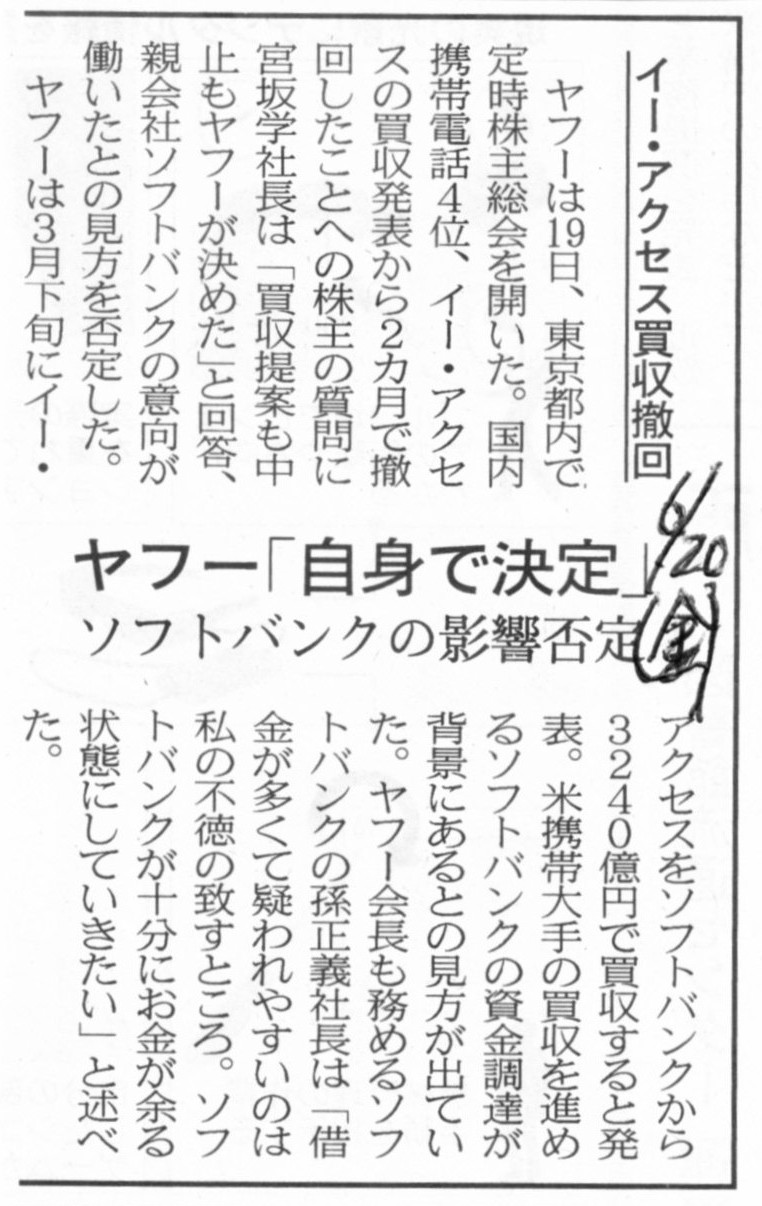 イー・アクセス買収撤回
ヤフー「自身で決定」
ソフトバンクの影響否定
6/20
(金)
ヤフーは19日、東京都内で
定時株主総会を開いた。国内
携帯電話4位、イー・アクセ
スの買収発表から2カ月で撤
回したことへの株主の質問に
宮坂学社長は「買収提案も中
止もヤフーが決めた」と回答、
親会社ソフトバンクの意向が
働いたとの見方を否定した。
ヤフーは3月下旬にイー・
アクセスをソフトバンクから
3240億円で買収すると発
表。米携帯大手の買収を進め
るソフトバンクの資金調達が
背景にあるとの見方が出てい
た。ヤフー会長も務めるソフ
トバンクの孫正義社長は「借
金が多くて疑われやすいのは
私の不徳の致すところ。ソフ
トバンクが十分にお金が余る
状態にしていきたい」と述べ
た。